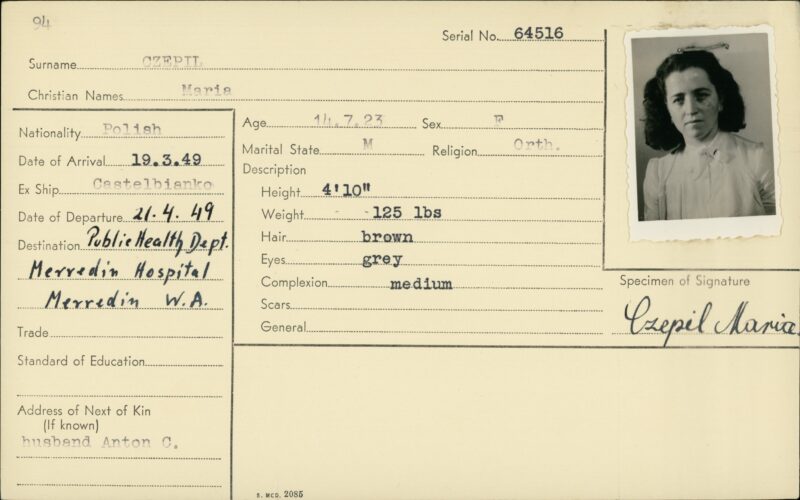 94
Serial No. 64516
Surname CZEPIL
Christian Names Maria
Nationality Polish
Date of Arrival 19.3.49
Ex Ship Castelbianko
Date of Departure 21.4.49
Destination Public Health Dept.
Merredin Hospital
Merredin W.A.
Trade
Standard of Education
Address of Next of Kin
(If known)
husband Anton C.
Age 14.7.23 Sex F
Marital State M Religion Orth.
Description
Height 4'10"
Weight - -125 lbs
Hair brown
Eyes grey
Complexion medium
Scars
General
Specimen of Signature
Czepil Maria
S. MCD. 2085